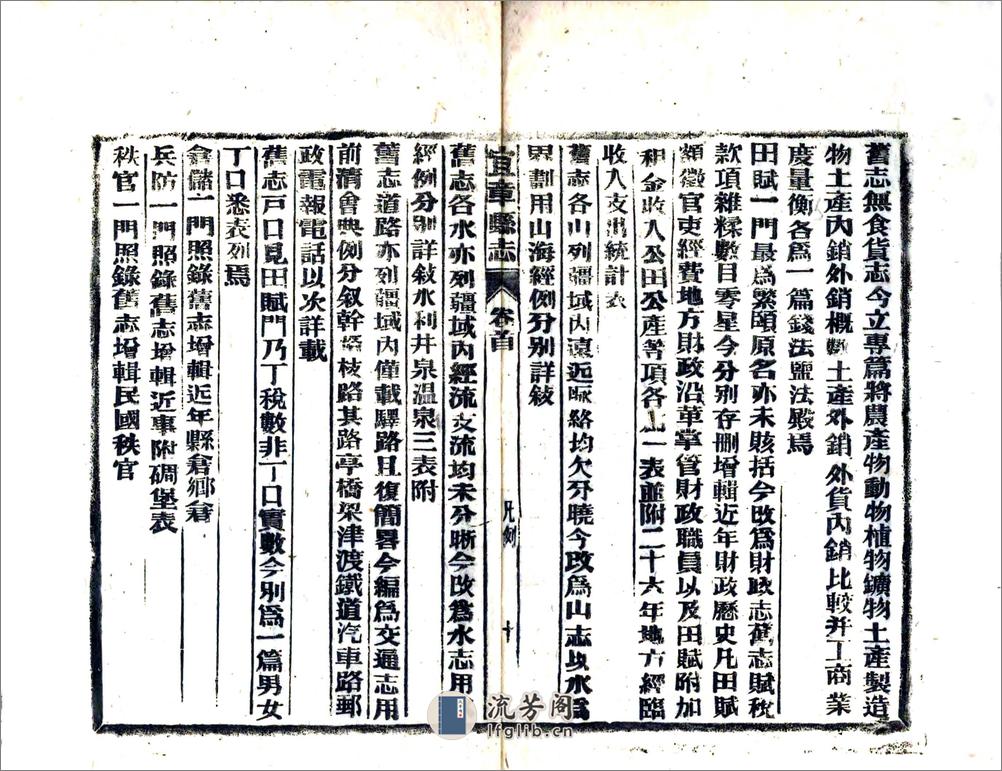 舊志無食貨志今立專篇將農產物動物植物鑛物土產製造
物土產內銷外銷概數土產外銷外貨內銷比較幷工商業
度量衡各爲一篇錢法鹽法殿焉
田賦一門最爲繁頤原名亦未賅括今改爲財政志舊志賦稅
款項雜糅數目零星今分別存删增輯近年財政歷史凡田賦
額徵官吏經費地方財政沿革掌管財政職員以及田賦附加
租金收入公田公產等項各止一表並附二十六年地方經臨
收入支出統計表
舊志各山列疆域內遠近脈絡均欠分曉今改爲山志以水爲
界劃用山海經例分別詳敍
宜章縣志
卷首
凡例
十
舊志各水亦列疆域內經流支流均未分晰今改爲水志用水
經例分別詳敍水利井泉溫泉三表附
舊志道路亦列疆域內僅載驛路且復簡畧今編爲交通志用
前清會典例分叙幹路枝路其路亭橋梁津渡鐵道汽車路郵
政電報電話以次詳載
舊志戸口見田賦門乃丁稅數非丁口實數今別爲一篇男女
丁口悉表列焉
倉儲一門照錄舊志增輯近年縣倉鄉倉
兵防一門照錄舊志增輯近事附碉堡表
秩官一門照錄舊志增輯民國秩官
流芳阁
lfglib.cn